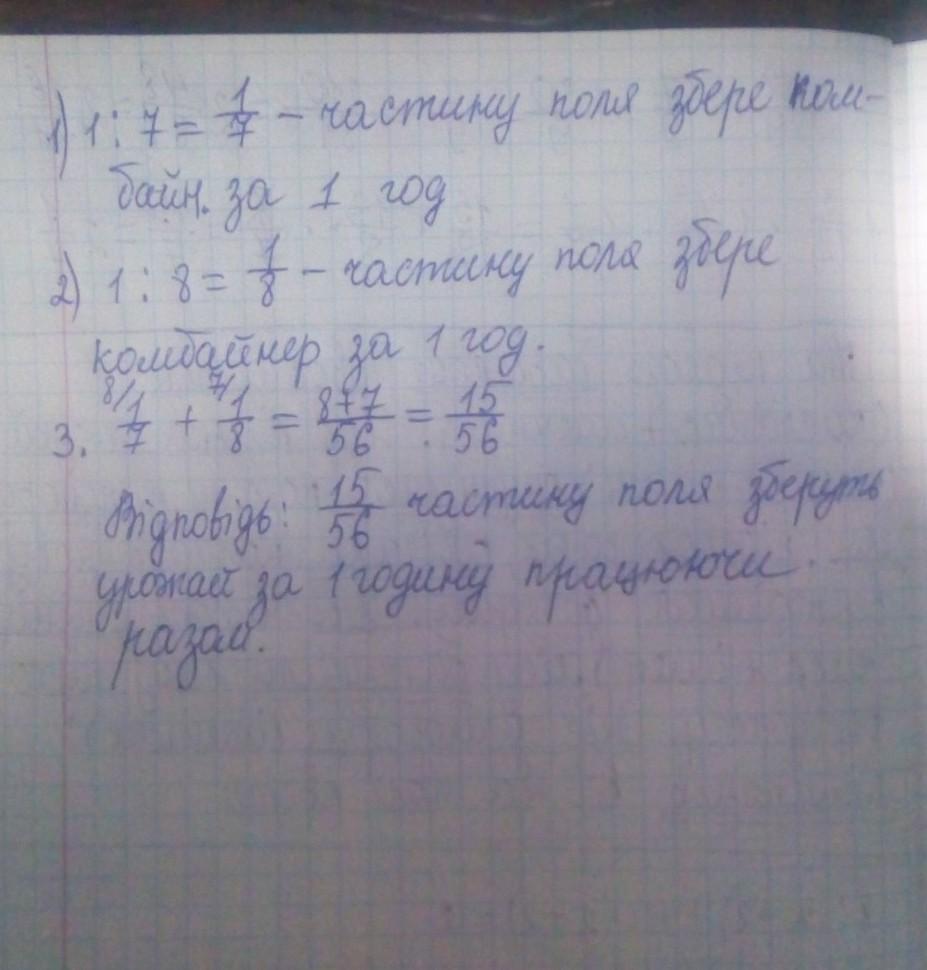 1) 1 : 7 = 1/7 – частину поля збере ком-
байн. за 1 год
2) 1 : 8 = 1/8 – частину поля збере
комбайнер за 1 год.
3. 8/ 1/7 + 7/ 1/8 = 8+7/56 = 15/56
Відповідь: 15/56 частину поля зберуть
урожай за 1 годину працюючи
разом.